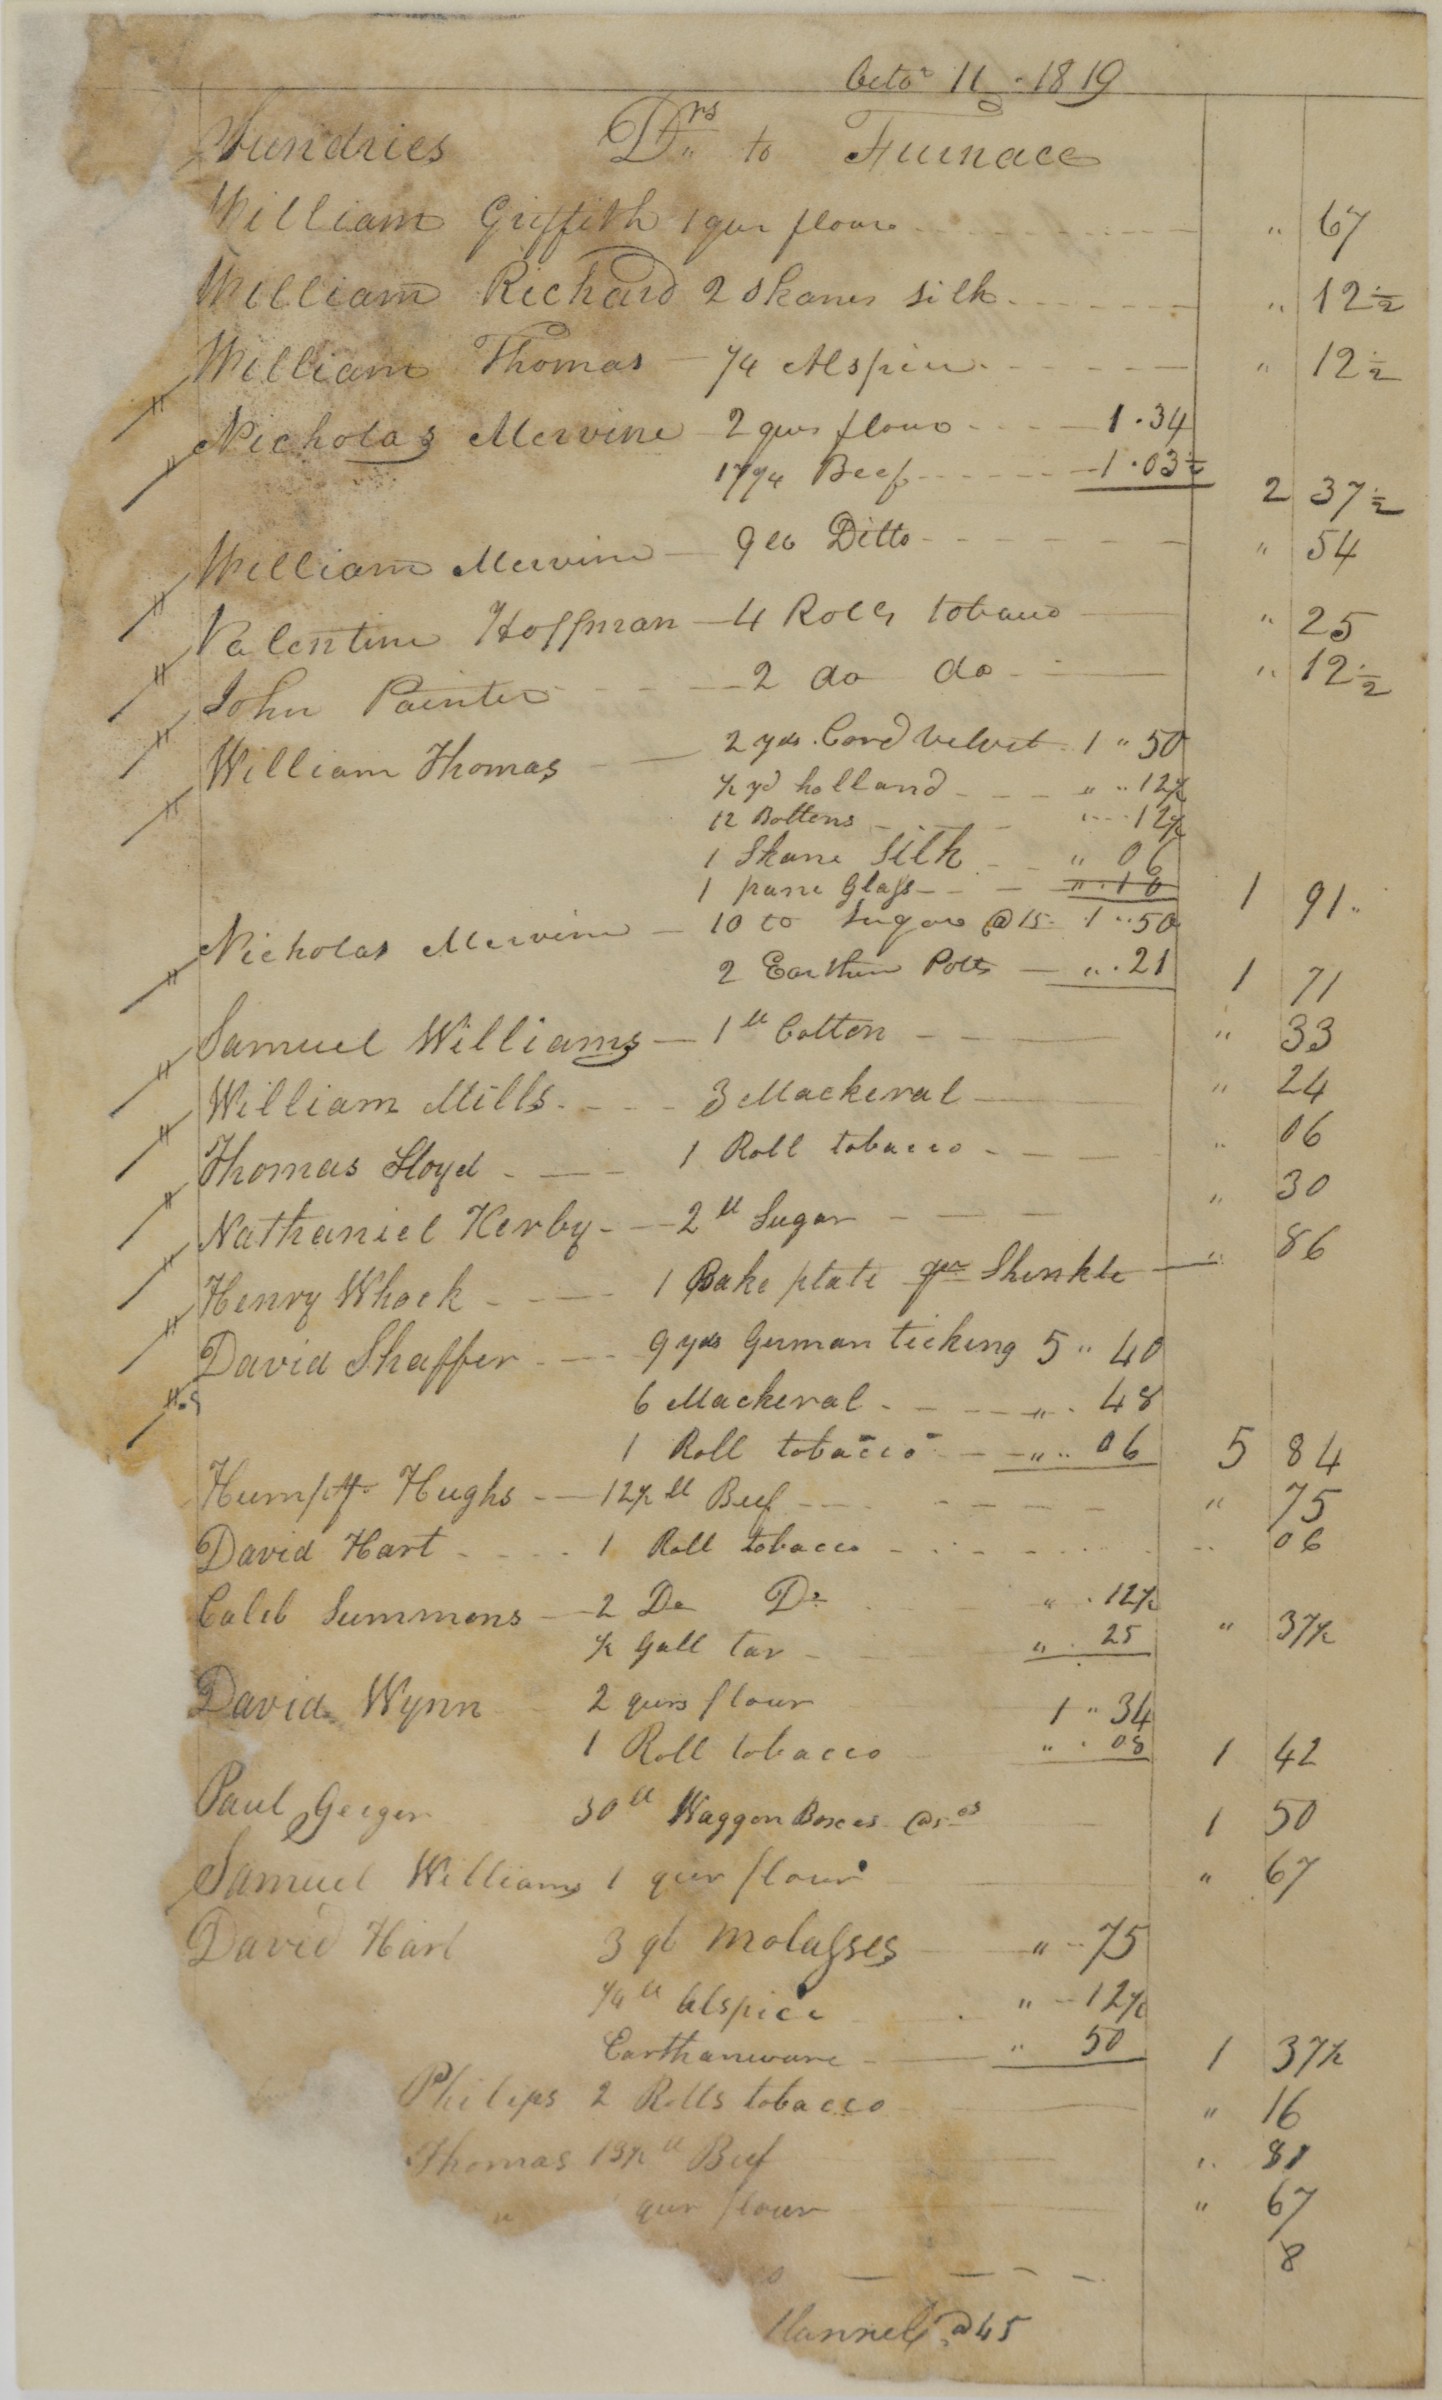 Octor 11 - 1819
Sundries Drs to Furnace
William Griffith 1 qur flour " 67
William Richard 2 Skanes silk " 12 1/2
William Thomas 1/4 Alspice " 12 1/2
Nicholas Mervine 2 qurs flour 1.34
17 1/4 Beef 1.03 1/2 2 37 1/2
William Mervine 9 lb Ditto " 54
Valentine Hoffman 4 Rolls tobacco " 25
John Painter 2 do do " 12 1/2
William Thomas 2 yds Cord Velvet 1 " 50
1/2 yd holland " " 12 1/2
12 Bottens " 12 1/2
1 Skane Silk " 06
1 pane Glass " 10 1 91
Nicholas Mervine 10 to Sugar @ 15 1 " 50
2 Earthen Potts " 21 1 71
Samuel Williams 1 ll Cotton " 33
William Mills 3 Mackeral " 24
Thomas Lloyd 1 Roll tobacco " 06
Nathaniel Kerby 2 ll Sugar " 30
Henry Whock 1 Bake plate per Shenkle " 86
David Shaffer 9 yds German ticking 5 " 40
6 Mackeral " 48
1 Roll tobacco " 06 5 84
Humphy Hughs 12 1/2 ll Beef " 75
David Hart 1 Roll tobacco " 06
Caleb Summons 2 Do Do " 12 1/2
1/2 Gall tar " 25 " 37 1/2
David Wynn 2 qurs flour 1 " 34
1 Roll tobacco " 08 1 42
Paul Geiger 30 ll Waggon Boxes @ 5 cs 1 50
Samuel Williams 1 qur flour " 67
David Hart 3 qt Molasses " 75
1/4 ll Alspice " 12 1/2
Earthanware " 50 1 37 1/2
Philips 2 Rolls tobacco " 16
Thomas 13 1/2 ll Beef " 81
" qur flour " 67
8
flannel @ 45